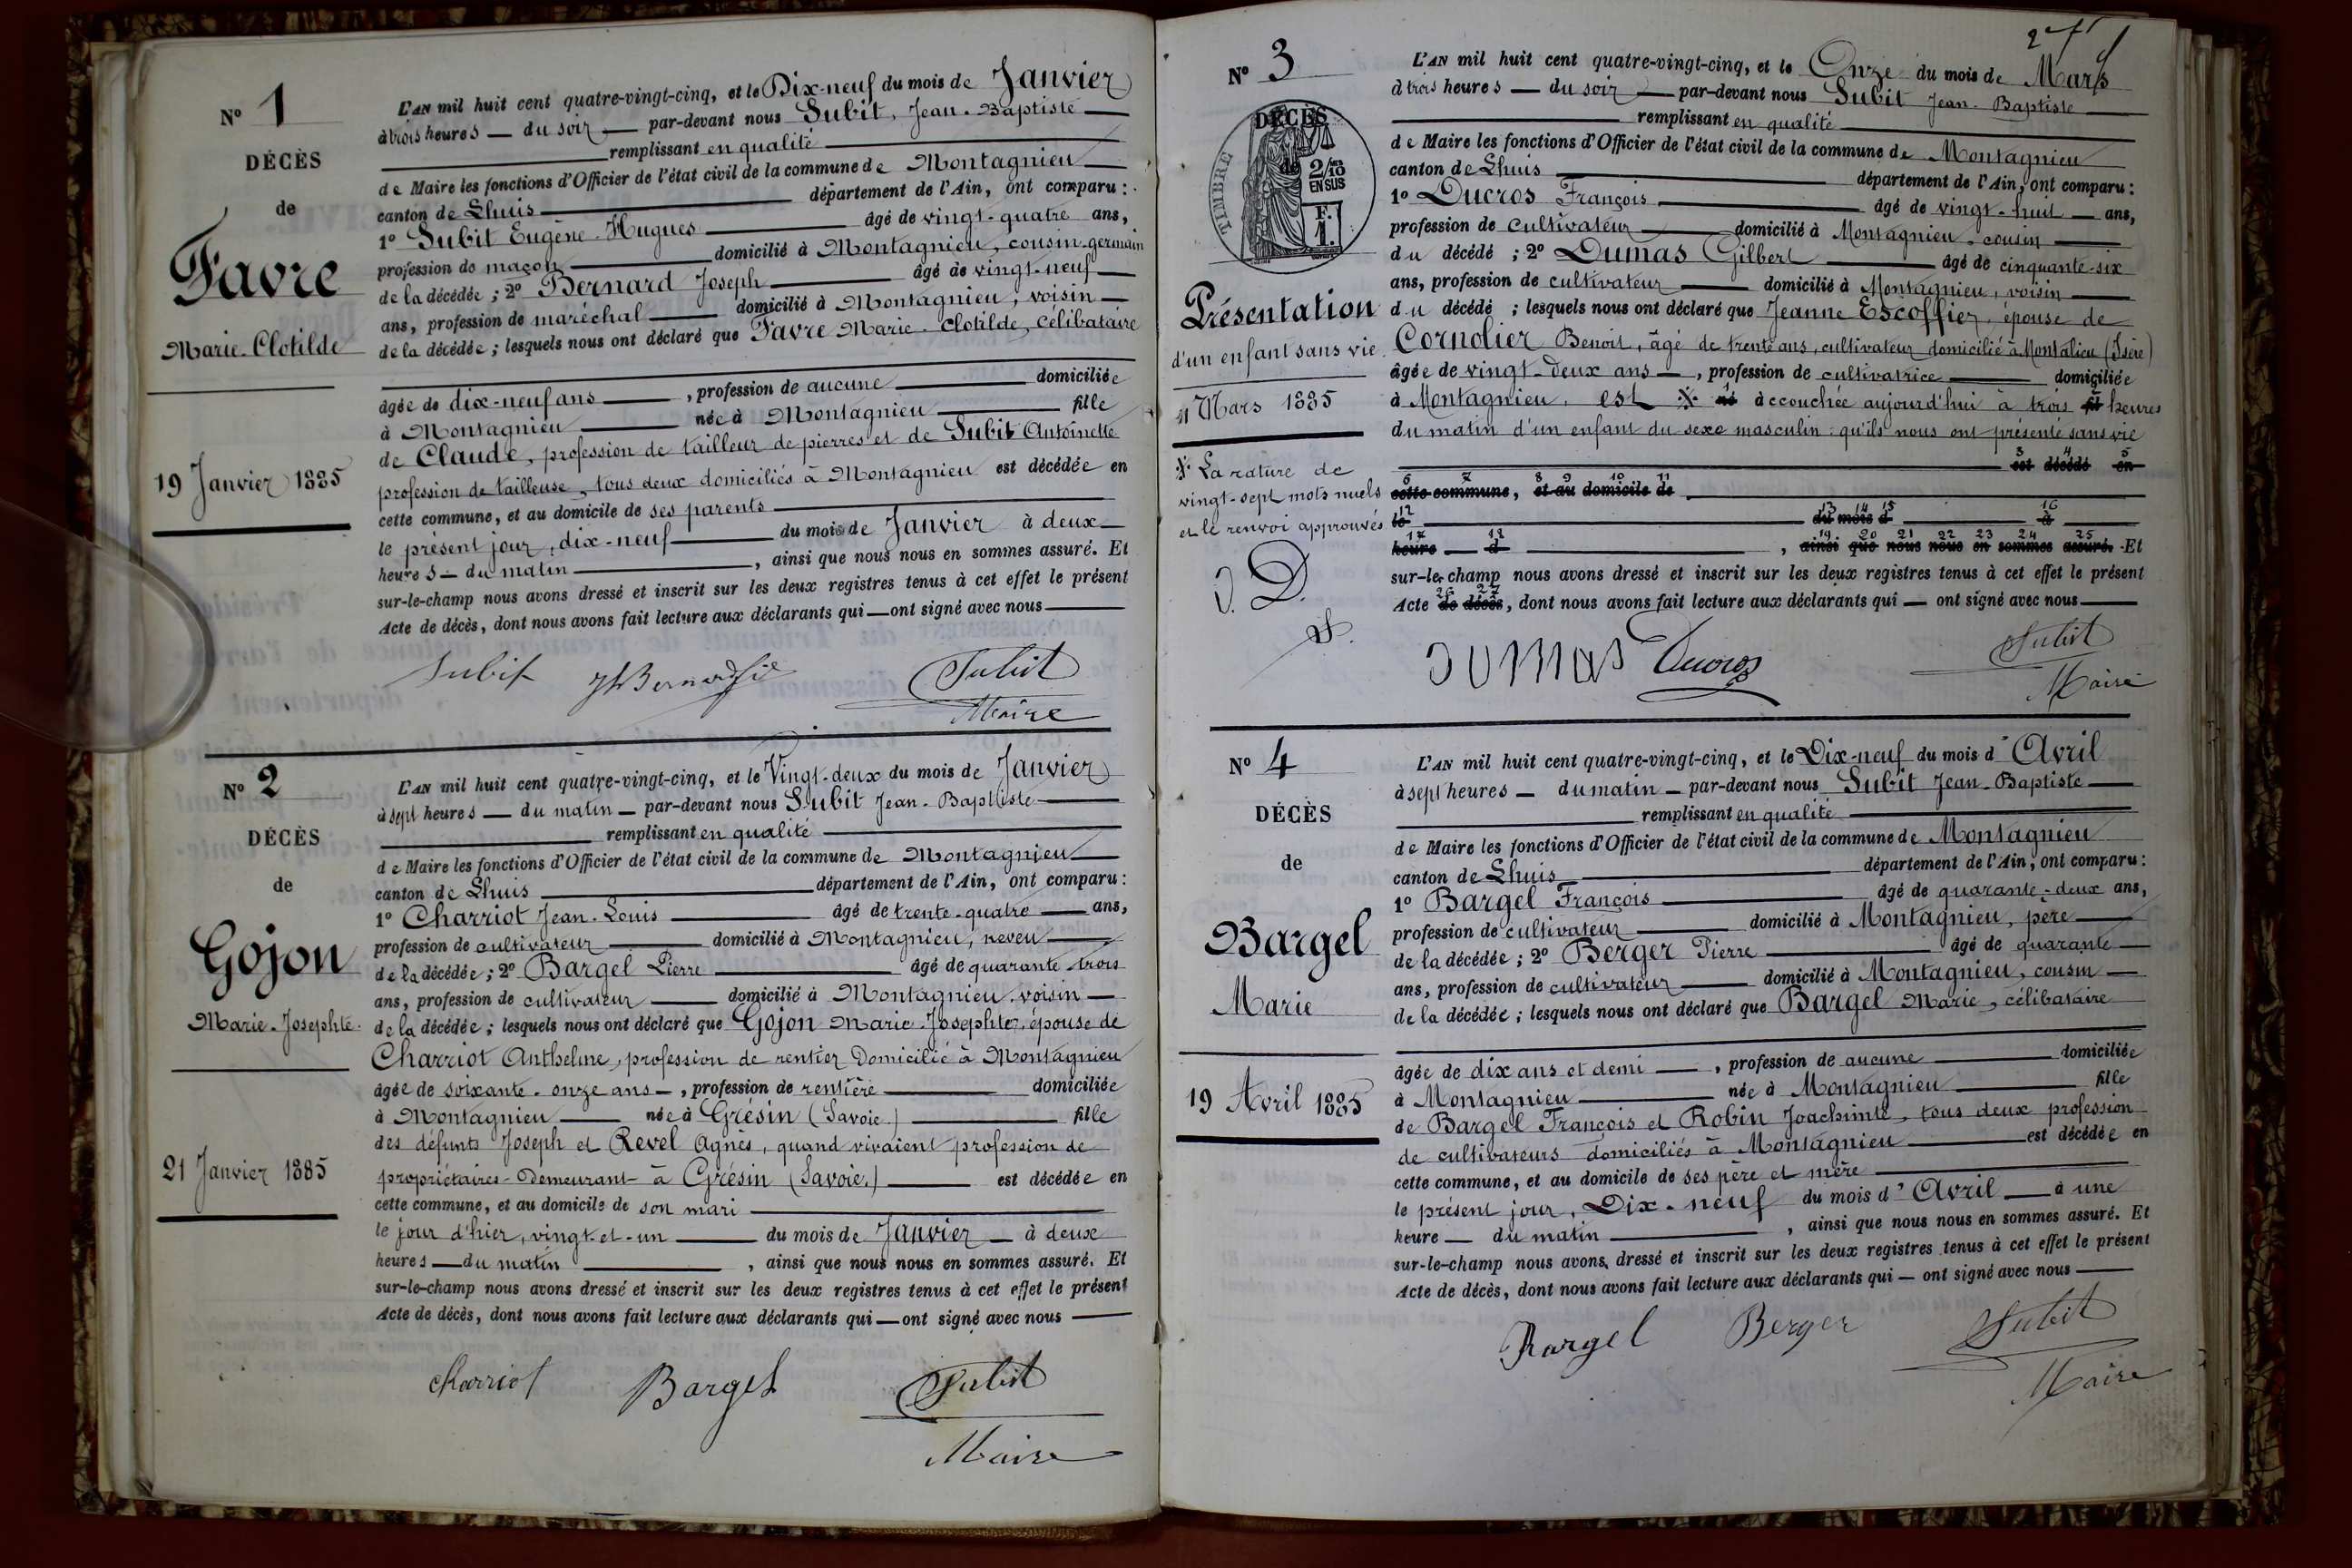 N° 1
DÉCÈS
de
Favre
Marie-Clotilde
19 Janvier 1885
L'AN mil huit cent quatre-vingt-cinq, et le Dix-neuf du mois de Janvier
à trois heures — du soir — par-devant nous Subit, Jean-Baptiste —
remplissant en qualité
de Maire les fonctions d'Officier de l'état civil de la commune de Montagnieu
canton de Lhuis — département de l'Ain, ont comparu :
1° Subit Eugène-Hugues — âgé de vingt-quatre ans,
profession de maçon — domicilié à Montagnieu, cousin-germain
de la décédée ; 2° Bernard Joseph — âgé de vingt-neuf —
ans, profession de maréchal — domicilié à Montagnieu, voisin —
de la décédée ; lesquels nous ont déclaré que Favre Marie-Clotilde, célibataire
âgée de dix-neuf ans —, profession de aucune — domiciliée
à Montagnieu — née à Montagnieu — fille
de Claude, profession de tailleur de pierres et de Subit Antoinette
profession de tailleuse, tous deux domiciliés à Montagnieu est décédée en
cette commune, et au domicile de ses parents —
le présent jour, dix-neuf — du mois de Janvier à deux —
heures — du matin —, ainsi que nous nous en sommes assuré. Et
sur-le-champ nous avons dressé et inscrit sur les deux registres tenus à cet effet le présent
Acte de décès, dont nous avons fait lecture aux déclarants qui — ont signé avec nous —
Subit Subit
Maire
N° 2
DÉCÈS
de
Gojon
Marie-Josephte
21 Janvier 1885
L'AN mil huit cent quatre-vingt-cinq, et le Vingt-deux du mois de Janvier
à sept heures — du matin — par-devant nous Subit Jean-Baptiste —
remplissant en qualité —
de Maire les fonctions d'Officier de l'état civil de la commune de Montagnieu —
canton de Lhuis — département de l'Ain, ont comparu :
1° Charriot Jean-Louis — âgé de trente-quatre — ans,
profession de cultivateur — domicilié à Montagnieu, neveu —
de la décédée ; 2° Bargel Pierre — âgé de quarante trois
ans, profession de cultivateur — domicilié à Montagnieu, voisin —
de la décédée ; lesquels nous ont déclaré que Gojon Marie-Josephte, épouse de
Charriot Anthelme, profession de rentier Domicilié à Montagnieu
âgée de soixante-onze ans —, profession de rentière — domiciliée
à Montagnieu — née à Grésin (Savoie) — fille
des défunts Joseph et Revel Agnès, quand vivaient profession de
propriétaires demeurant à Grésin (Savoie.) — est décédée en
cette commune, et au domicile de son mari —
le jour d'hier, vingt-et-un — du mois de Janvier — à deux
heures — du matin —, ainsi que nous nous en sommes assuré. Et
sur-le-champ nous avons dressé et inscrit sur les deux registres tenus à cet effet le présent
Acte de décès, dont nous avons fait lecture aux déclarants qui — ont signé avec nous —
Charriot Bargel Subit
Maire
N° 3
DÉCÈS
TIMBRE
de 2/10
EN SUS
F.
1.
Présentation
d'un enfant sans vie
11 Mars 1885
※ La rature de
vingt-sept mots nuels
et le renvoi approuvés
J. D.
L'AN mil huit cent quatre-vingt-cinq, et le Onze du mois de Mars
à trois heures — du soir — par-devant nous Subit Jean-Baptiste —
remplissant en qualité —
de Maire les fonctions d'Officier de l'état civil de la commune de Montagnieu
canton de Lhuis — département de l'Ain, ont comparu :
1° Ducros François — âgé de vingt-huit — ans,
profession de cultivateur — domicilié à Montagnieu, cousin —
du décédé ; 2° Dumas Gilbert — âgé de cinquante-six
ans, profession de cultivateur — domicilié à Montagnieu, voisin —
du décédé ; lesquels nous ont déclaré que Jeanne Escoffier, épouse de
Cornolier Benoit, âgé de trente ans, cultivateur domicilié à Montalieu (Isère)
âgée de vingt-deux ans —, profession de cultivatrice — domiciliée
à Montagnieu, est ※ né accouchée aujourd'hui à trois fil heures
du matin d'un enfant du sexe masculin qu'ils nous ont présenté sans vie
est décédé en
cette commune, et au domicile de —
le — du mois d — à
heure — d —, ainsi que nous nous en sommes assuré. Et
sur-le-champ nous avons dressé et inscrit sur les deux registres tenus à cet effet le présent
Acte de décès, dont nous avons fait lecture aux déclarants qui — ont signé avec nous —
DUMAS Ducros Subit
Maire
N° 4
DÉCÈS
de
Bargel
Marie
19 Avril 1885
L'AN mil huit cent quatre-vingt-cinq, et le Dix-neuf du mois d'Avril
à sept heures — du matin — par-devant nous Subit Jean-Baptiste —
remplissant en qualité —
de Maire les fonctions d'Officier de l'état civil de la commune de Montagnieu
canton de Lhuis — département de l'Ain, ont comparu :
1° Bargel François — âgé de quarante-deux ans,
profession de cultivateur — domicilié à Montagnieu, père —
de la décédée ; 2° Berger Pierre — âgé de quarante —
ans, profession de cultivateur — domicilié à Montagnieu, cousin —
de la décédée ; lesquels nous ont déclaré que Bargel Marie, célibataire
âgée de dix ans et demi —, profession de aucune — domiciliée
à Montagnieu — née à Montagnieu — fille
de Bargel François et Robin Joachinte, tous deux profession
de cultivateurs domiciliés à Montagnieu — est décédée en
cette commune, et au domicile de ses père et mère —
le présent jour, Dix-neuf du mois d'Avril — à une
heure — du matin —, ainsi que nous nous en sommes assuré. Et
sur-le-champ nous avons dressé et inscrit sur les deux registres tenus à cet effet le présent
Acte de décès, dont nous avons fait lecture aux déclarants qui — ont signé avec nous —
Bargel Berger Subit
Maire